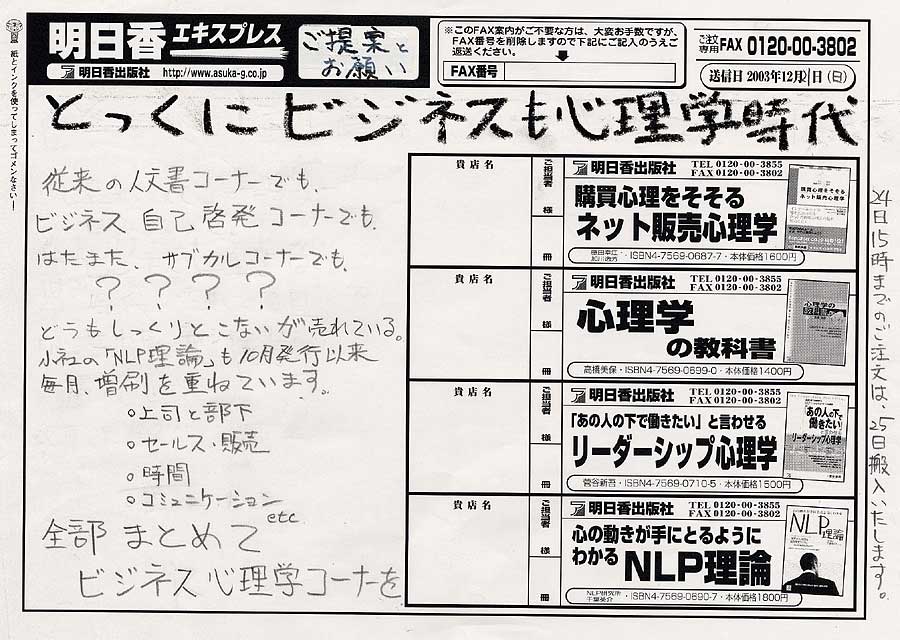 紙とインクを使ってしまってゴメンなさい!
明日香エキスプレス
明日香出版社 http://www.asuka-g.co.jp
ご提案と
お願い
※このFAX案内がご不要な方は、大変お手数ですが、
FAX番号を削除しますので下記にご記入のうえご
返送ください。
FAX番号
ご注文専用FAX 0120-00-3802
送信日 2003年12月21日(日)
とっくにビジネスも心理学時代
従来の人文書コーナーでも、
ビジネス 自己啓発コーナーでも、
はたまた、サブカルコーナーでも、
? ? ? ?
どうもしっくりとこないが売れている。
小社の「NLP理論」も10月発行以来
毎月、増刷を重ねています。
○上司と部下
○セールス・販売
○時間
○コミュニケーション
etc
全部 まとめて
ビジネス心理学コーナーを
貴店名
ご担当者
様
冊
明日香出版社 TEL 0120-00-3855
FAX 0120-00-3802
購買心理をそそる
ネット販売心理学
・ISBN4-7569-0687-7・本体価格1600円
購買心理をそそる
ネット販売心理学
貴店名
ご担当者
様
冊
明日香出版社 TEL 0120-00-3855
FAX 0120-00-3802
心理学
の教科書
高橋美保・ISBN4-7569-0699-0・本体価格1400円
心理学の
教科書
貴店名
ご担当者
様
冊
明日香出版社 TEL 0120-00-3855
FAX 0120-00-3802
「あの人の下で働きたい」と言わせる
リーダーシップ心理学
菅谷新吾・ISBN4-7569-0710-5・本体価格1500円
「あの人の下で
働きたい」
と言わせる
リーダーシップ心理学
貴店名
ご担当者
様
冊
明日香出版社 TEL 0120-00-3855
FAX 0120-00-3802
心の動きが手にとるように
わかる NLP理論
NLP研究所
千葉英介・ISBN4-7569-0690-7・本体価格1800円
NLP理論
24日15時までのご注文は、25日搬入いたします。